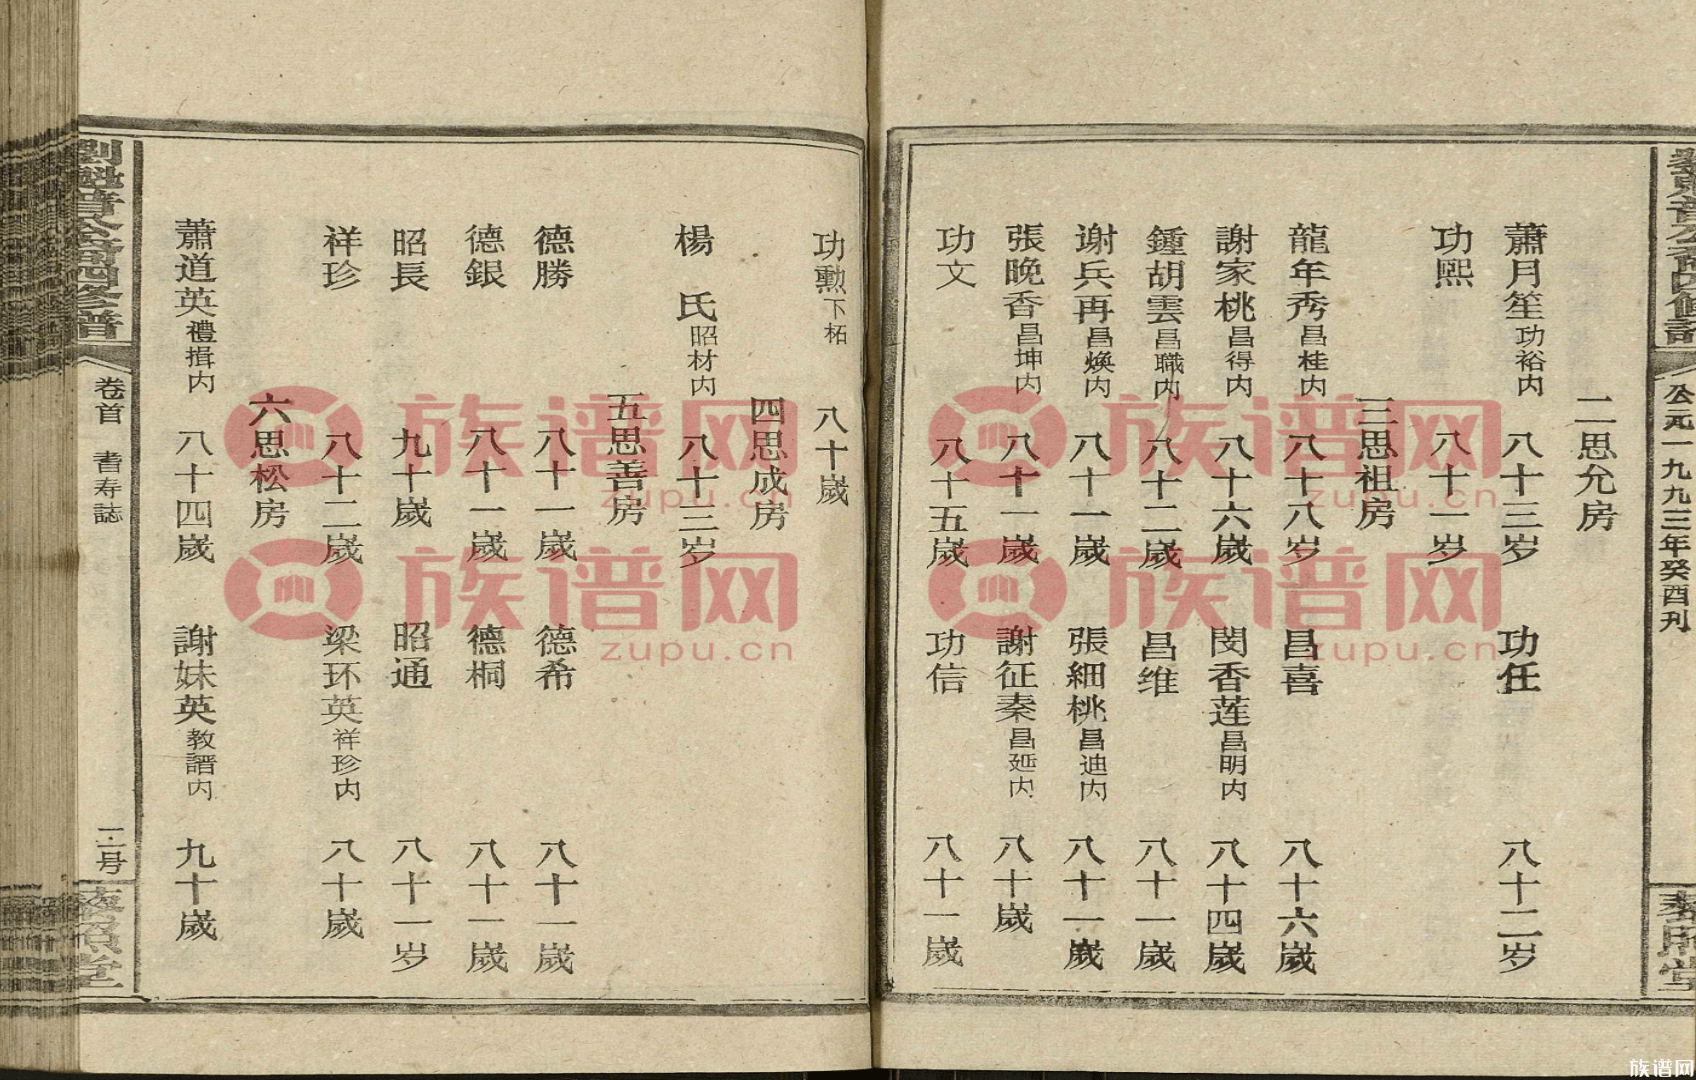 公元一九九三年癸酉刊
藜照堂
二思允房
蕭月笙功裕内 八十三岁 功任 八十二岁
功熙 八十一岁
三思祖房
龍年秀昌桂内 八十八岁 昌喜 八十六歲
謝家桃昌得内 八十六歲 閔香莲昌明内 八十四歲
鍾胡雲昌職内 八十二歲 昌维 八十一歲
谢兵再昌煥内 八十一歲 張細桃昌迪内 八十一歲
張晚香昌坤内 八十一歲 謝征秦昌延内 八十歲
功文 八十五歲 功信 八十一歲
功勲下柘 八十歲
四思成房
楊氏昭材内 八十三岁
五思善房
德勝 八十一歲 德希 八十一歲
德銀 八十一歲 德桐 八十一歲
昭長 九十歲 昭通 八十一岁
祥珍 八十二歲 梁环英祥珍内 八十歲
六思松房
蕭道英禮揖内 八十四歲 謝妹英教譜内 九十歲
卷首 耆寿誌
藜照堂
族谱网
zupu.cn
族谱网
zupu.cn
族谱网
zupu.cn
族谱网
zupu.cn
族谱网